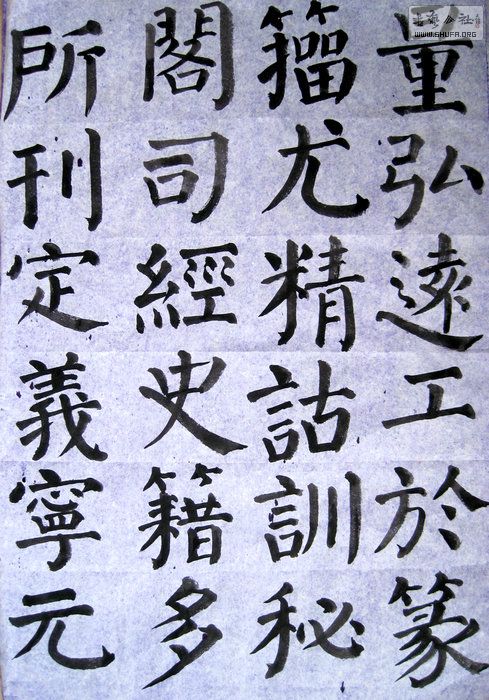 量弘遠工於篆
籀尤精詁訓秘
閣司經史籍多
所刊定義寧元
WWW.SHUFA.ORG